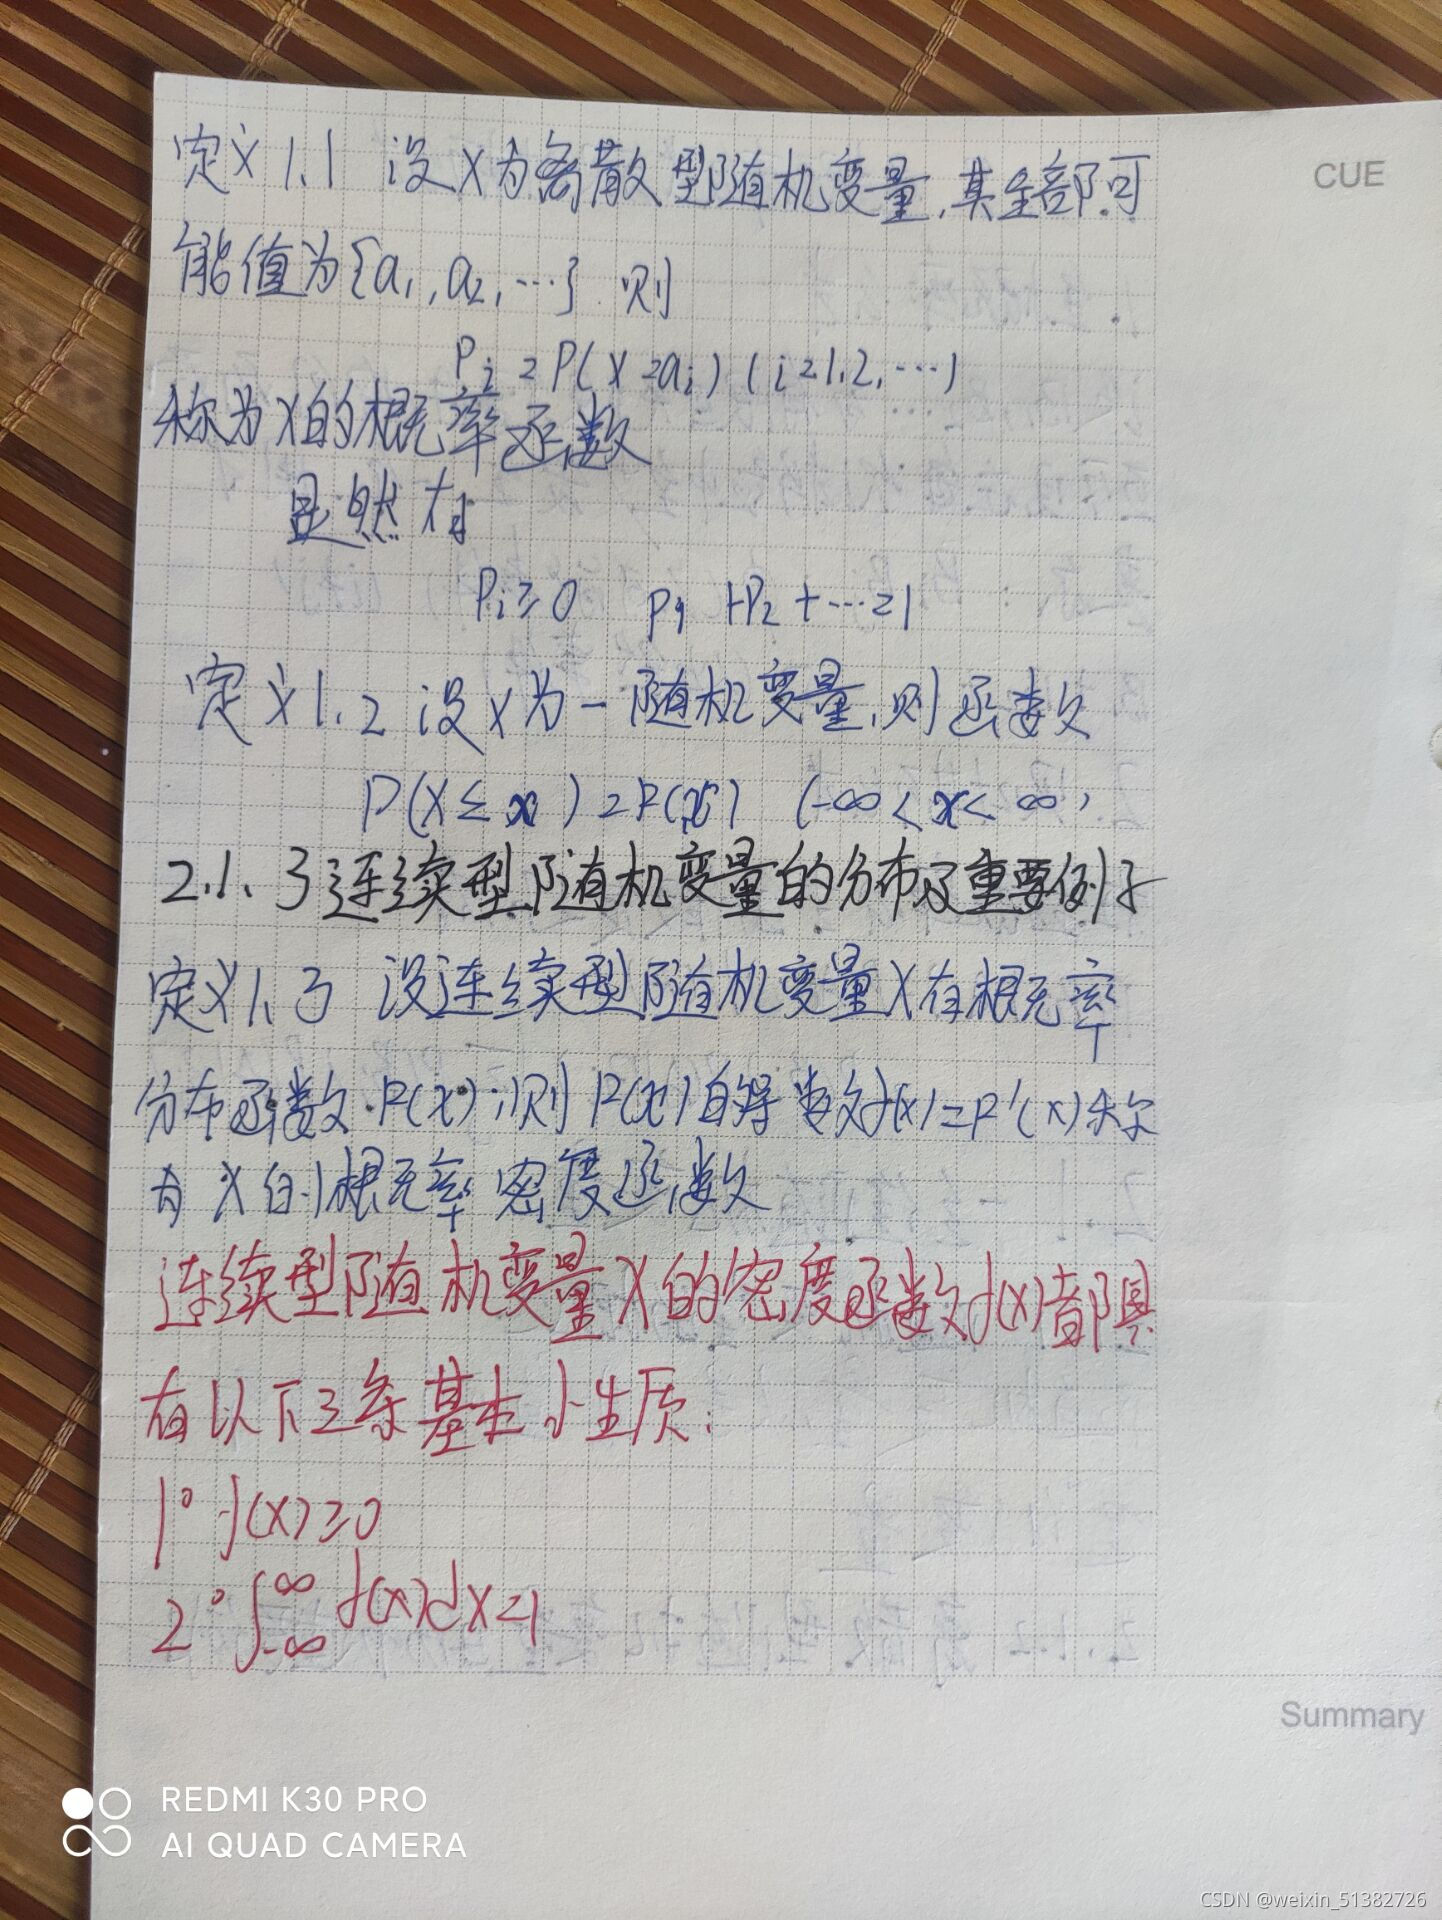 定义1.1 设X为离散型随机变量,其全部可
能值为{a₁,a₂,…}.则
Pᵢ=P(X=aᵢ) (i=1,2,…)
称为X的概率函数
显然有
Pᵢ≥0 P₁+P₂+…=1
定义1.2 设X为一随机变量,则函数
P(X≤x)=F(x) (-∞<x<∞)
2.1.3连续型随机变量的分布及重要例子
定义1.3 设连续型随机变量X有概率
分布函数F(x),则F(x)的导数f(x)=F'(x)称
为X的概率密度函数
连续型随机变量X的密度函数f(x)都具
有以下三条基本性质:
1° f(x)≥0
2° ∫₋∞^∞ f(x)dx=1
CUE
Summary
REDMI K30 PRO
AI QUAD CAMERA
CSDN @weixin_51382726